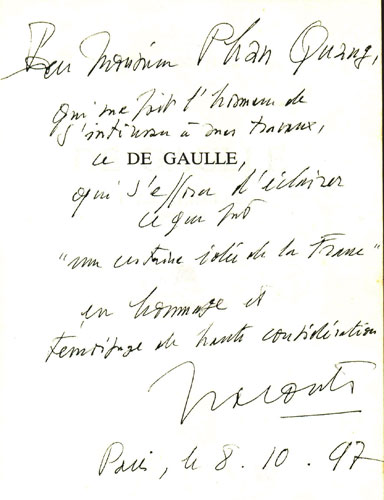 Pour Monsieur Phan Quang,
qui me fait l'honneur de
s'intéresser à mes travaux,
ce DE GAULLE,
qui s'efforce d'éclairer
ce que fût
"une certaine idée de la France"
en hommage et
témoignage de haute considération
Paris, le 8.10.97